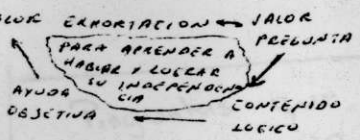 EXHORTACION VALOR
PREGUNTA
PARA APRENDER A
HABLAR Y LOGRAR
SU INDEPENDEN
CIA
AYUDA
OBJETIVA
CONTENIDO
LOGICO